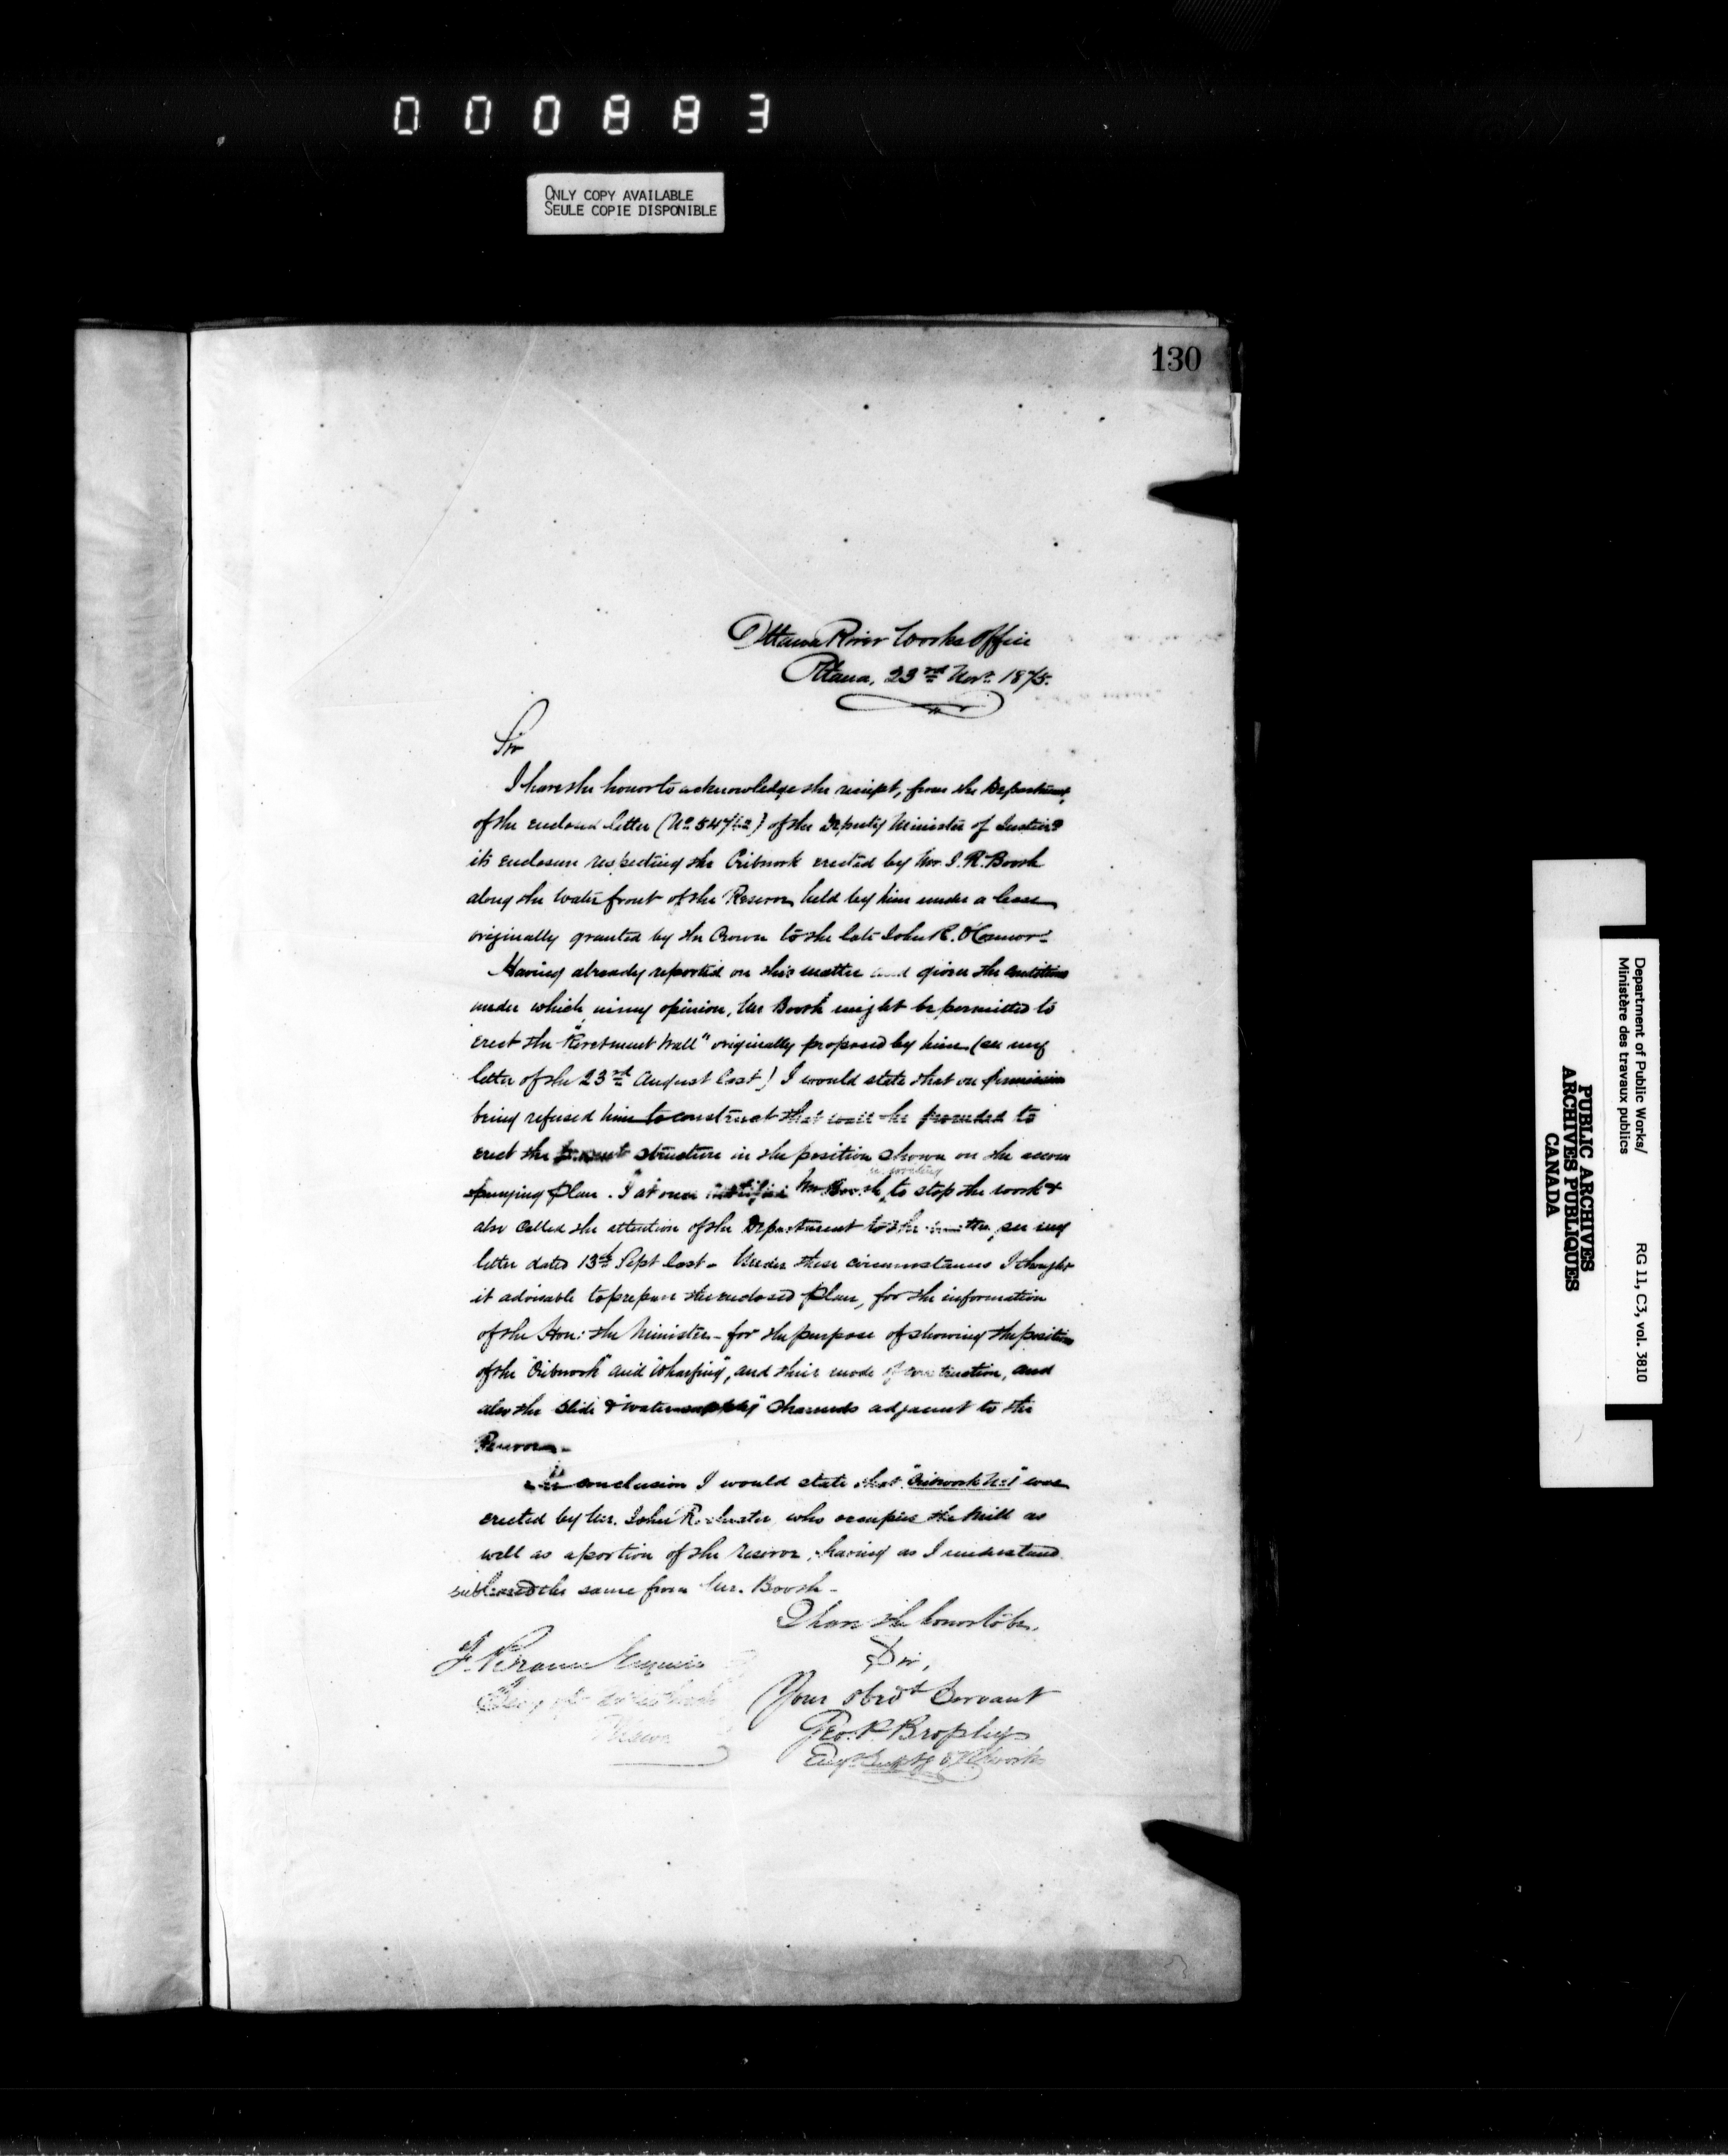 000883
ONLY COPY AVAILABLE
SEULE COPIE DISPONIBLE
130
Ottawa River Works Office
Ottawa, 23rd Novr. 1875.
Sir
I have the honor to acknowledge the receipt, from the Department,
of the enclosed letter (No 54762) of the Deputy Minister of Justice &
its enclosure respecting the Cribwork erected by Mr. J. R. Booth
along the water front of the Reserve, held by him under a lease
originally granted by the Crown to the late John R. O'Connor.
Having already reported on this matter and given the conditions
under which, in my opinion, Mr Booth might be permitted to
erect the "Revetment Wall" originally proposed by him (see my
letter of the 23rd August last) I would state that on permission
being refused him to construct that wall he proceeded to
erect the present structure in the position shown on the accom
panying Plan. I at once notified Mr Booth, to stop the work &
also called the attention of the Department to the matter, see my
letter dated 13th Sept last. Under these circumstances I thought
it advisable to prepare the enclosed Plan, for the information
of the Hon: the Minister - for the purpose of showing the position
of the "Cribwork" and "Wharfing", and their mode of construction, and
also the Slide & "water supply" channels adjacent to the
Reserve.
In conclusion I would state that "Cribwork No 1" was
erected by Mr. John Rochester who occupies the Mill as
well as a portion of the reserve, having as I understand
subleased the same from Mr. Booth -
I have the honor to be,
Sir,
Your obedt Servant
Geo. P. Brophy
F. Braun Esquire
Department of Public Works/
Ministère des travaux publics
RG 11, C3, vol. 3810
PUBLIC ARCHIVES
ARCHIVES PUBLIQUES
CANADA